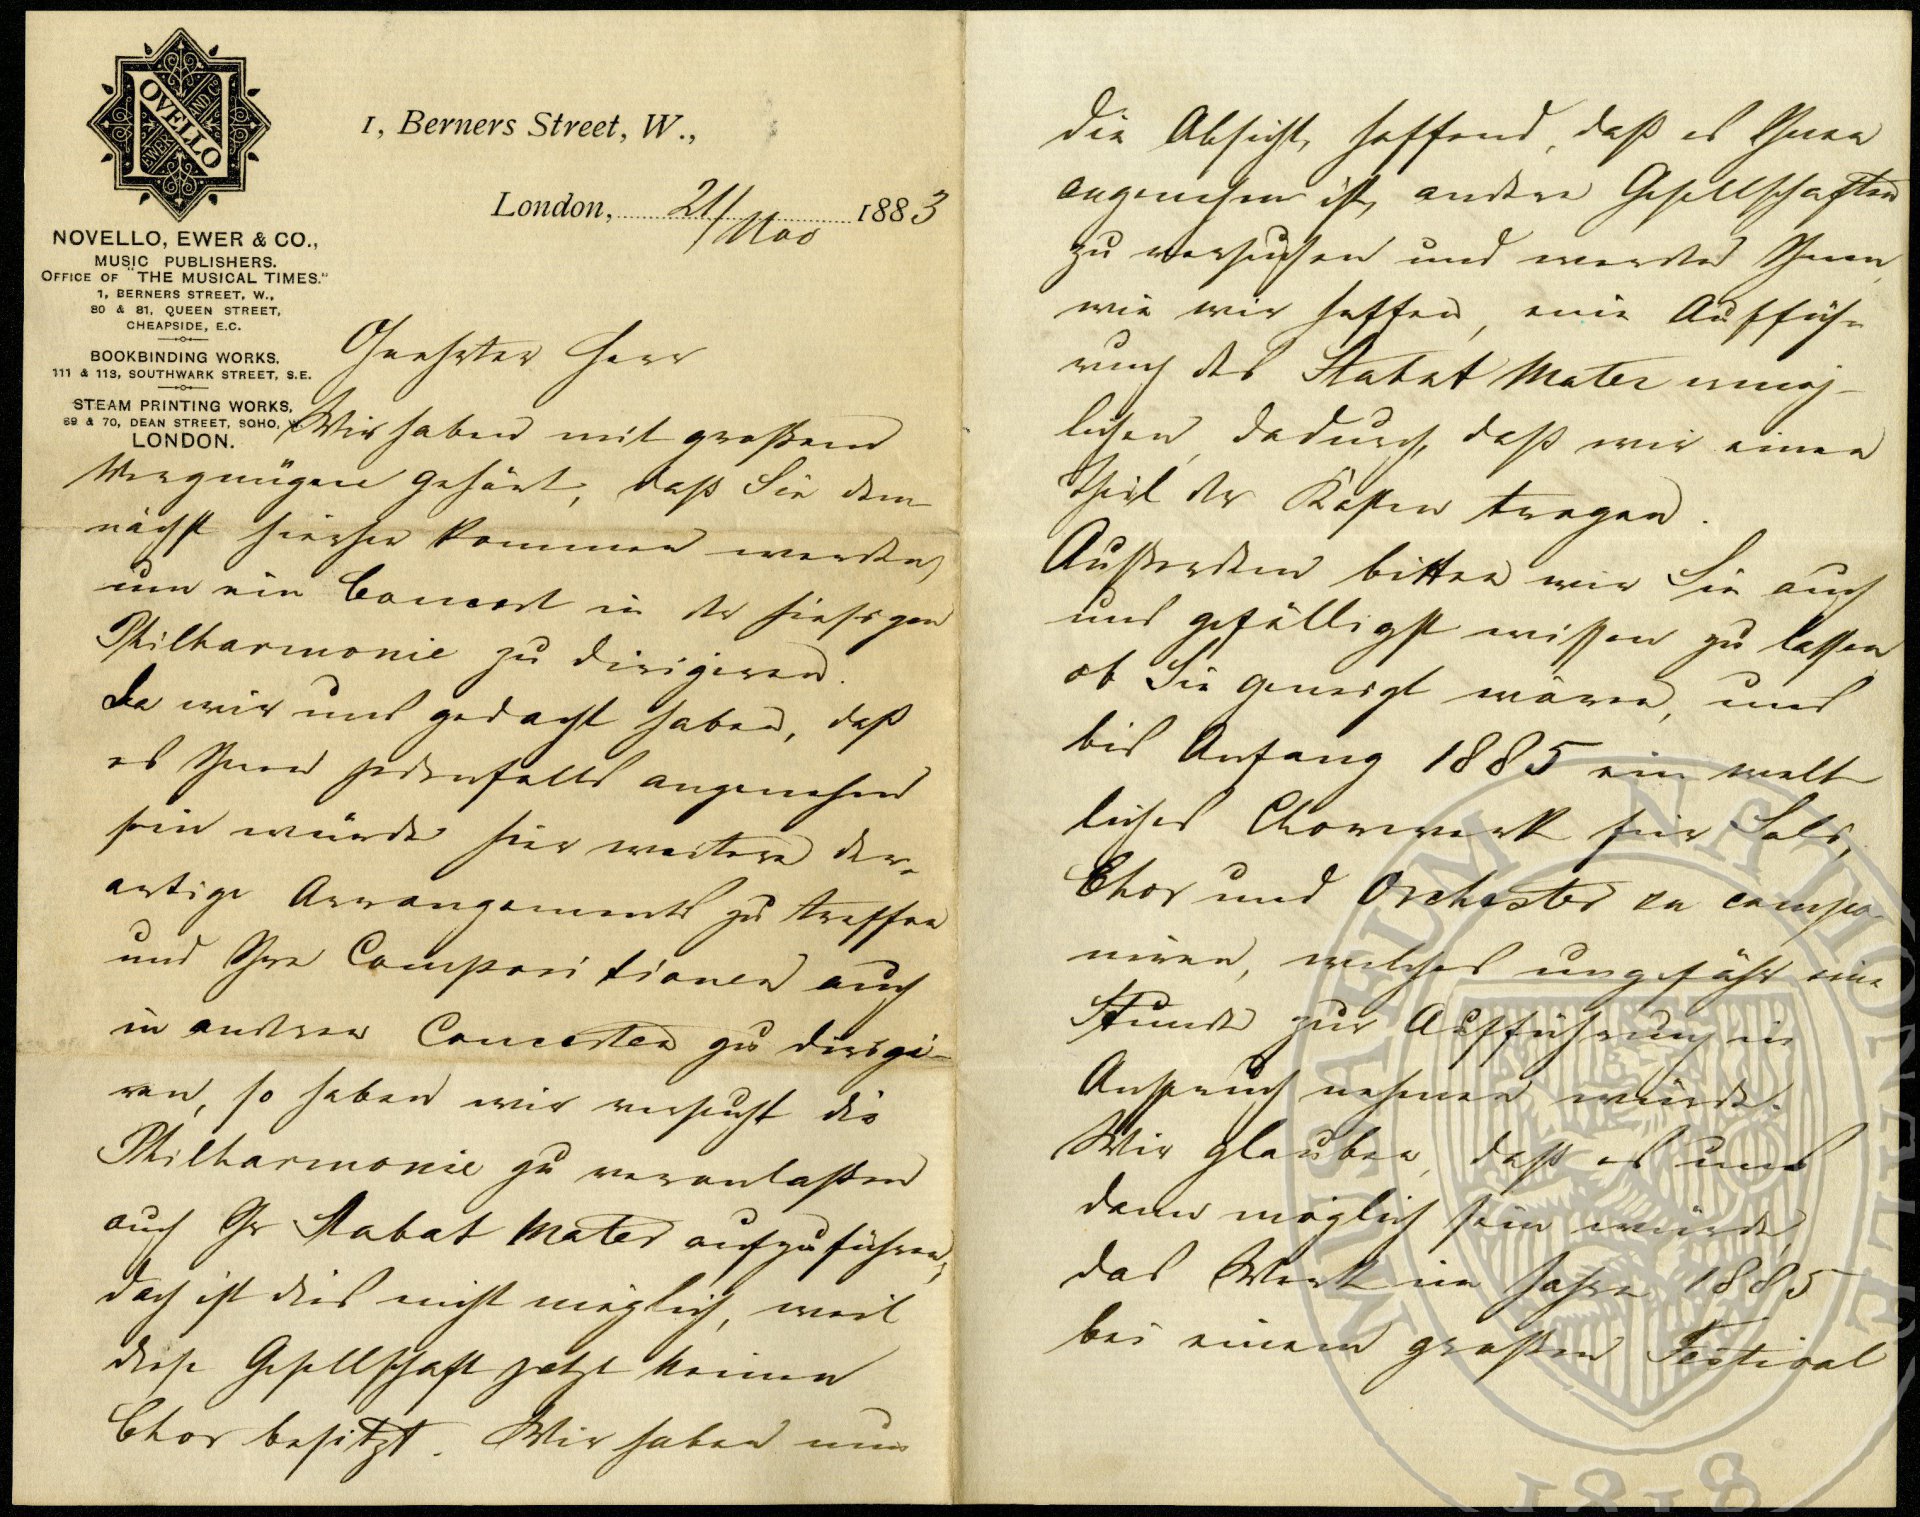 NOVELLO
EWER
AND CO
NOVELLO, EWER & CO.,
MUSIC PUBLISHERS.
OFFICE OF "THE MUSICAL TIMES."
1, BERNERS STREET, W.,
80 & 81, QUEEN STREET,
CHEAPSIDE, E.C.
BOOKBINDING WORKS,
111 & 113, SOUTHWARK STREET, S.E.
STEAM PRINTING WORKS,
69 & 70, DEAN STREET, SOHO, W.
LONDON.
1, Berners Street, W.,
London, 21/Nov 1883
Geehrter Herr
Wir haben mit großem
Vergnügen gehört, daß Sie dem-
nächst hierher kommen werden,
um ein Concert in der hiesigen
Philharmonie zu dirigiren.
Da wir uns gedacht haben, daß
es Ihnen jedenfalls angenehm
sein würde hier weitere der-
artige Arrangements zu treffen
und Ihre Compositionen auch
in anderen Concerten zu dirigi-
ren, so haben wir versucht die
Philharmonie zu veranlaßen
auch Ihr Stabat Mater aufzuführen,
doch ist dies nicht möglich, weil
diese Gesellschaft jetzt keinen
Chor besitzt. Wir haben nun
die Absicht, hoffend, daß es Ihnen
angenehm ist, andere Gesellschaften
zu versuchen und werden Ihnen,
wie wir hoffen, eine Auffüh-
rung des Stabat Mater ermög-
lichen, dadurch, daß wir einen
Theil der Kosten tragen.
Außerdem bitten wir Sie auch
uns gefälligst wissen zu lassen
ob Sie geneigt wären, uns
bis Anfang 1885 ein welt-
liches Chorwerk für Solo,
Chor und Orchester zu compo-
niren, welches ungefähr eine
Stunde zur Aufführung in
Anspruch nehmen würde.
Wir glauben, daß es uns
dann möglich sein würde,
das Werk im Jahre 1885
bei einem großen Festival
MUSAEUM NATIONALE
1818